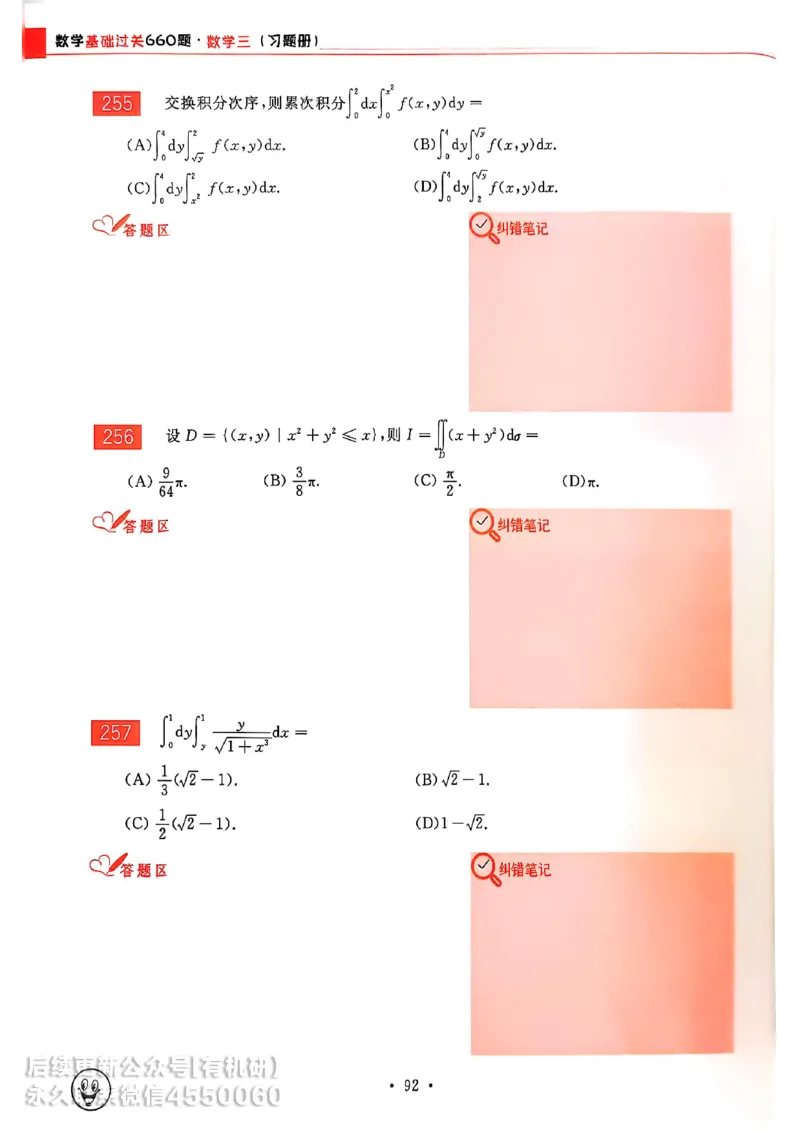 数学基础过关660题·数学三（习题册）
255 交换积分次序,则累次积分∫₀²dx∫₀^{x²} f(x,y)dy =
(A)∫₀⁴dy∫_{√y}² f(x,y)dx. (B)∫₀⁴dy∫₀^{√y} f(x,y)dx.
(C)∫₀⁴dy∫_{x²}² f(x,y)dx. (D)∫₀⁴dy∫₂^{√y} f(x,y)dx.
答题区 纠错笔记
256 设 D = {(x,y) | x² + y² ⩽ x},则 I = ∬_D (x + y²)dσ =
(A) 9/64 π. (B) 3/8 π. (C) π/2. (D)π.
答题区 纠错笔记
257 ∫₀¹dy∫_y¹ y/√(1+x³) dx =
(A) 1/3(√2 − 1). (B)√2 − 1.
(C) 1/2(√2 − 1). (D)1 − √2.
答题区 纠错笔记
后续更新公众号[有机研]
永久 微信4550060
· 92 ·